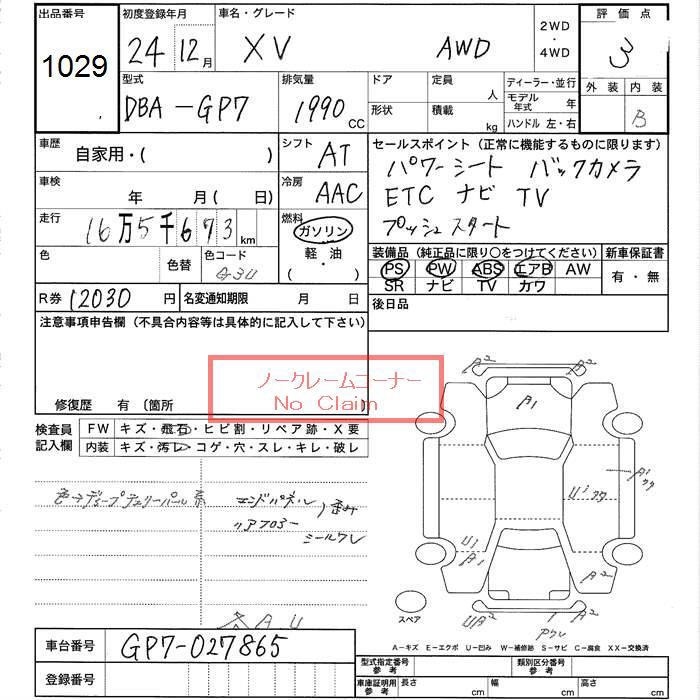 出品番号 初度登録年月 車名・グレード 2WD ・ 4WD 評価点
1029 24 12月 XV AWD 3
型式 排気量 ドア 定員 人 ディーラー・並行 外装 内装
DBA-GP7 1990 CC 形状 積載 kg モデル年式 年 B
ハンドル 左・右
車歴 自家用・( ) シフト AT セールスポイント(正常に機能するものに限ります)
パワーシート バックカメラ
車検 年 月(日) 冷房 AAC ETC ナビ TV
走行 16万5千673km 燃料 ガソリン プッシュスタート
軽油
( ・ )
色 色替 色コード G3U 装備品(純正品に限り○をつけてください) 新車保証書
PS PW ABS エアB AW 有・無
SR ナビ TV カワ
R券 12030 円 名変通知期限 月 日 後日品
注意事項申告欄(不具合内容等は具体的に記入して下さい)
ノークレームコーナー
No Claim
修復歴 有 〔箇所
検査員記入欄 FW キズ・飛石・ヒビ割・リペア跡・X要
内装 キズ・汚レ・コゲ・穴・スレ・キレ・破レ
色→ディープチェリーパール系
エンドパネル
リアフロアー
歪み
シールワレ
A2 A2
A1
A1
U1
U1
A1
A2
UA2 A2
スペア
A-キズ E-エクボ U-凹み W-補修跡 S-サビ C-腐食 XX-交換済
車台番号 GP7-027865
登録番号
型式指定番号 参考 類別区分番号 参考
車庫証明用 参考 長さ cm 幅 cm 高さ cm